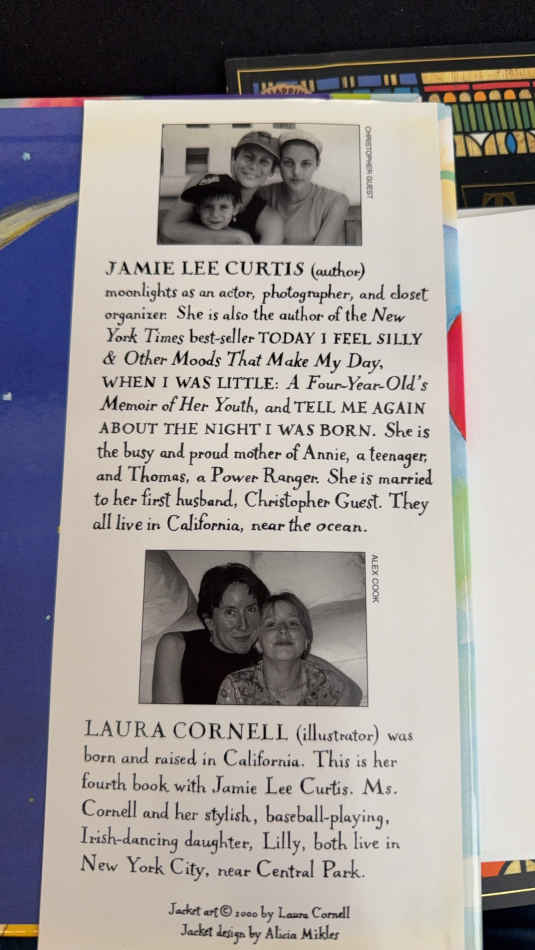 CHRISTOPHER GUEST
JAMIE LEE CURTIS (author)
moonlights as an actor, photographer, and closet
organizer. She is also the author of the New
York Times best-seller TODAY I FEEL SILLY
& Other Moods That Make My Day,
WHEN I WAS LITTLE: A Four-Year-Old's
Memoir of Her Youth, and TELL ME AGAIN
ABOUT THE NIGHT I WAS BORN. She is
the busy and proud mother of Annie, a teenager,
and Thomas, a Power Ranger. She is married
to her first husband, Christopher Guest. They
all live in California, near the ocean.
ALEX COOK
LAURA CORNELL (illustrator) was
born and raised in California. This is her
fourth book with Jamie Lee Curtis. Ms.
Cornell and her stylish, baseball-playing,
Irish-dancing daughter, Lilly, both live in
New York City, near Central Park.
Jacket art © 2000 by Laura Cornell
Jacket design by Alicia Mikles